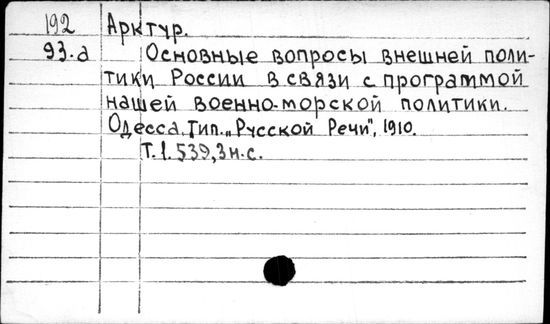 192 Арктур.
93.а Основные вопросы внешней поли-
тики России в связи с программой
нашей военно-морской политики.
Одесса. Тип. „Русской Речи", 1910.
Т.1. 539, 3 н.с.